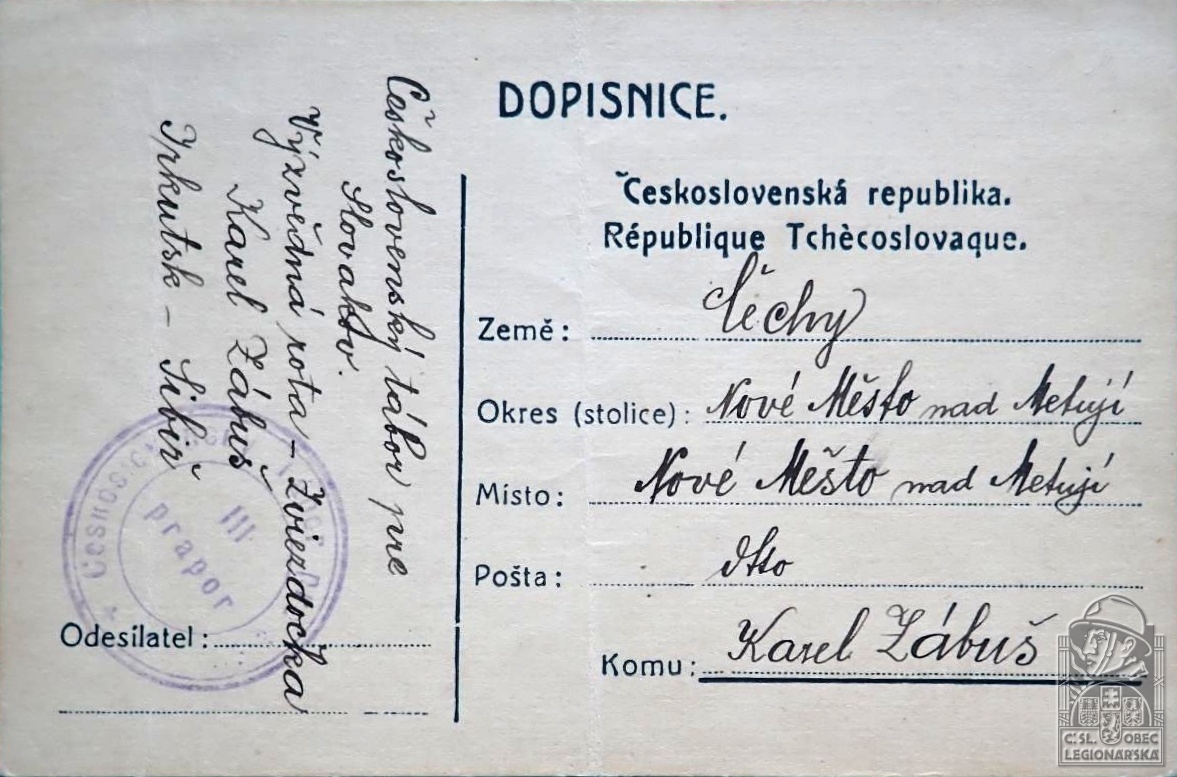 DOPISNICE.
Československá republika.
République Tchècoslovaque.
Země: Čechy
Okres (stolice): Nové Město nad Metují
Místo: Nové Město nad Metují
Pošta: dtto
Komu: Karel Zábuš
Československý tábor pre
Slovakov.
Výzvědná rota – Zviezdočka
Karel Zábuš
Irkutsk – Sibiř
III
prapor
Odesílatel:
Č.SL. OBEC
LEGIONÁŘSKÁ